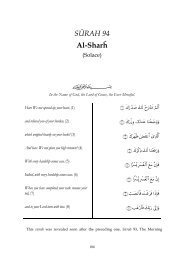 SŪRAH 94
Al-Sharḥ
(Solace)
In the Name of God, the Lord of Grace, the Ever-Merciful
Have We not opened up your heart, (1)
أَلَمْ نَشْرَحْ لَكَ صَدْرَكَ
and relieved you of your burden, (2)
وَوَضَعْنَا عَنكَ وِزْرَكَ
which weighed heavily on your back? (3)
ٱلَّذِىٓ أَنقَضَ ظَهْرَكَ
And have We not given you high renown? (4)
وَرَفَعْنَا لَكَ ذِكْرَكَ
With every hardship comes ease. (5)
فَإِنَّ مَعَ ٱلْعُسْرِ يُسْرًا
Indeed, with every hardship comes ease. (6)
إِنَّ مَعَ ٱلْعُسْرِ يُسْرًا
When you have completed your task resume your
toil, (7)
فَإِذَا فَرَغْتَ فَٱنصَبْ
and to your Lord turn with love. (8)
وَإِلَىٰ رَبِّكَ فَٱرْغَب
This surah was revealed soon after the preceding one, Surah 93, The Morning